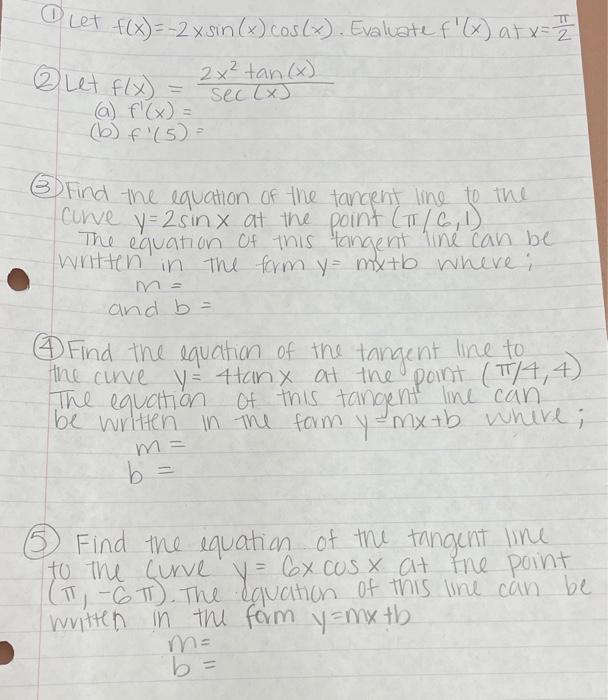 ① Let f(x)=-2xsin(x)cos(x). Evaluate f'(x) at x=π/2
② Let f(x) = 2x² tan(x) / sec(x)
(a) f'(x) =
(b) f'(5) =
③ Find the equation of the tangent line to the
curve y=2sinx at the point (π/6,1)
The equation of this tangent line can be
written in the form y= mx+b where;
m =
and b =
④ Find the equation of the tangent line to
the curve y= 4tanx at the point (π/4,4)
The equation of this tangent line can
be written in the form y=mx+b where;
m =
b =
⑤ Find the equation of the tangent line
to the curve y= 6x cos x at the point
(π,-6π). The equation of this line can be
written in the form y=mx+b
m=
b =